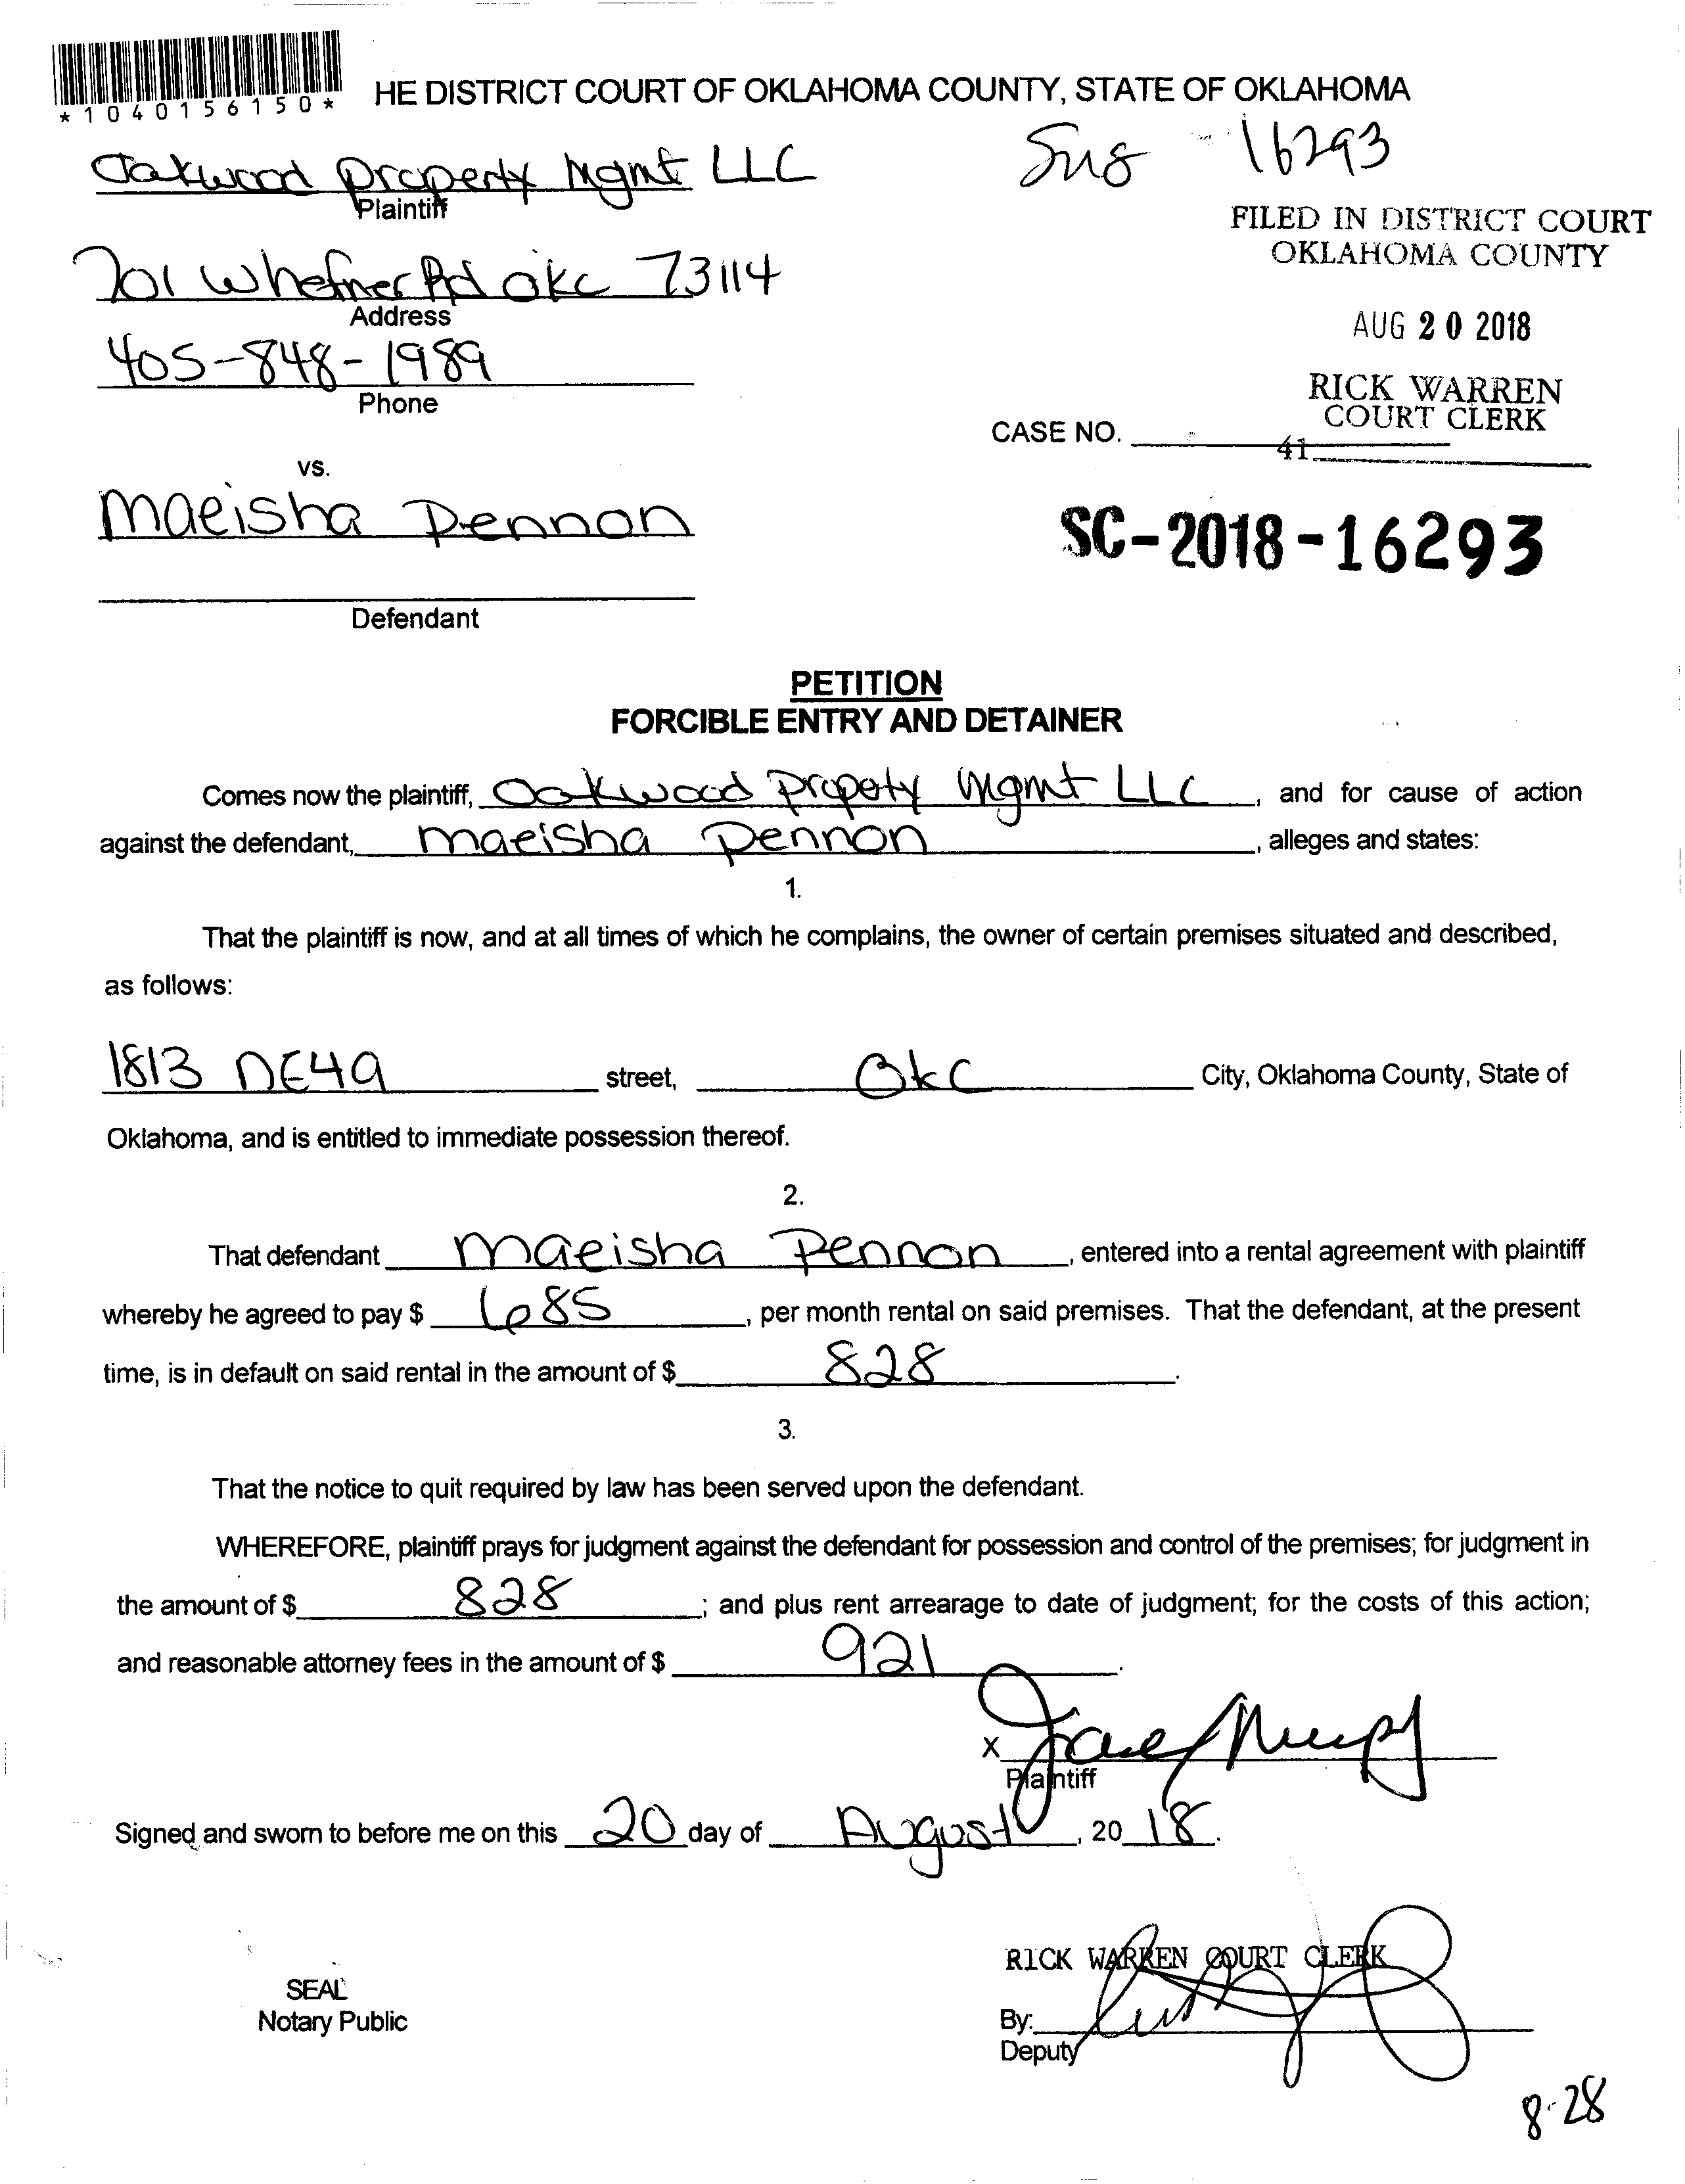 *1040156150*
HE DISTRICT COURT OF OKLAHOMA COUNTY, STATE OF OKLAHOMA
Oakwood Property Mgmt LLC
Plaintiff
16293
FILED IN DISTRICT COURT
OKLAHOMA COUNTY
701 Whefner Rd okc 73114
Address
AUG 20 2018
405-848-1989
Phone
RICK WARREN
COURT CLERK
CASE NO.
41
vs.
Maeisha Pennon
SC-2018-16293
Defendant
PETITION
FORCIBLE ENTRY AND DETAINER
Comes now the plaintiff, Oakwood Propety Mgmt LLC, and for cause of action
against the defendant, Maeisha Pennon, alleges and states:
1.
That the plaintiff is now, and at all times of which he complains, the owner of certain premises situated and described,
as follows:
1813 NE49 street, Okc City, Oklahoma County, State of
Oklahoma, and is entitled to immediate possession thereof.
2.
That defendant Maeisha Pennon, entered into a rental agreement with plaintiff
whereby he agreed to pay $ 685, per month rental on said premises. That the defendant, at the present
time, is in default on said rental in the amount of $ 828.
3.
That the notice to quit required by law has been served upon the defendant.
WHEREFORE, plaintiff prays for judgment against the defendant for possession and control of the premises; for judgment in
the amount of $ 828; and plus rent arrearage to date of judgment; for the costs of this action;
and reasonable attorney fees in the amount of $ 921.
X
Plaintiff
Signed and sworn to before me on this 20 day of August, 20 18.
RICK WARREN COURT CLERK
SEAL
Notary Public
By:
Deputy
8-28